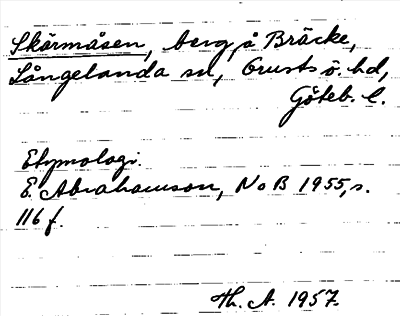 Skärmåsen, berg å Bräcke,
Långelanda sn, Orusts ö. hd,
Göteb. l.
Etymologi.
E. Abrahamson, NoB 1955, s.
116 f.
Th. A. 1957.